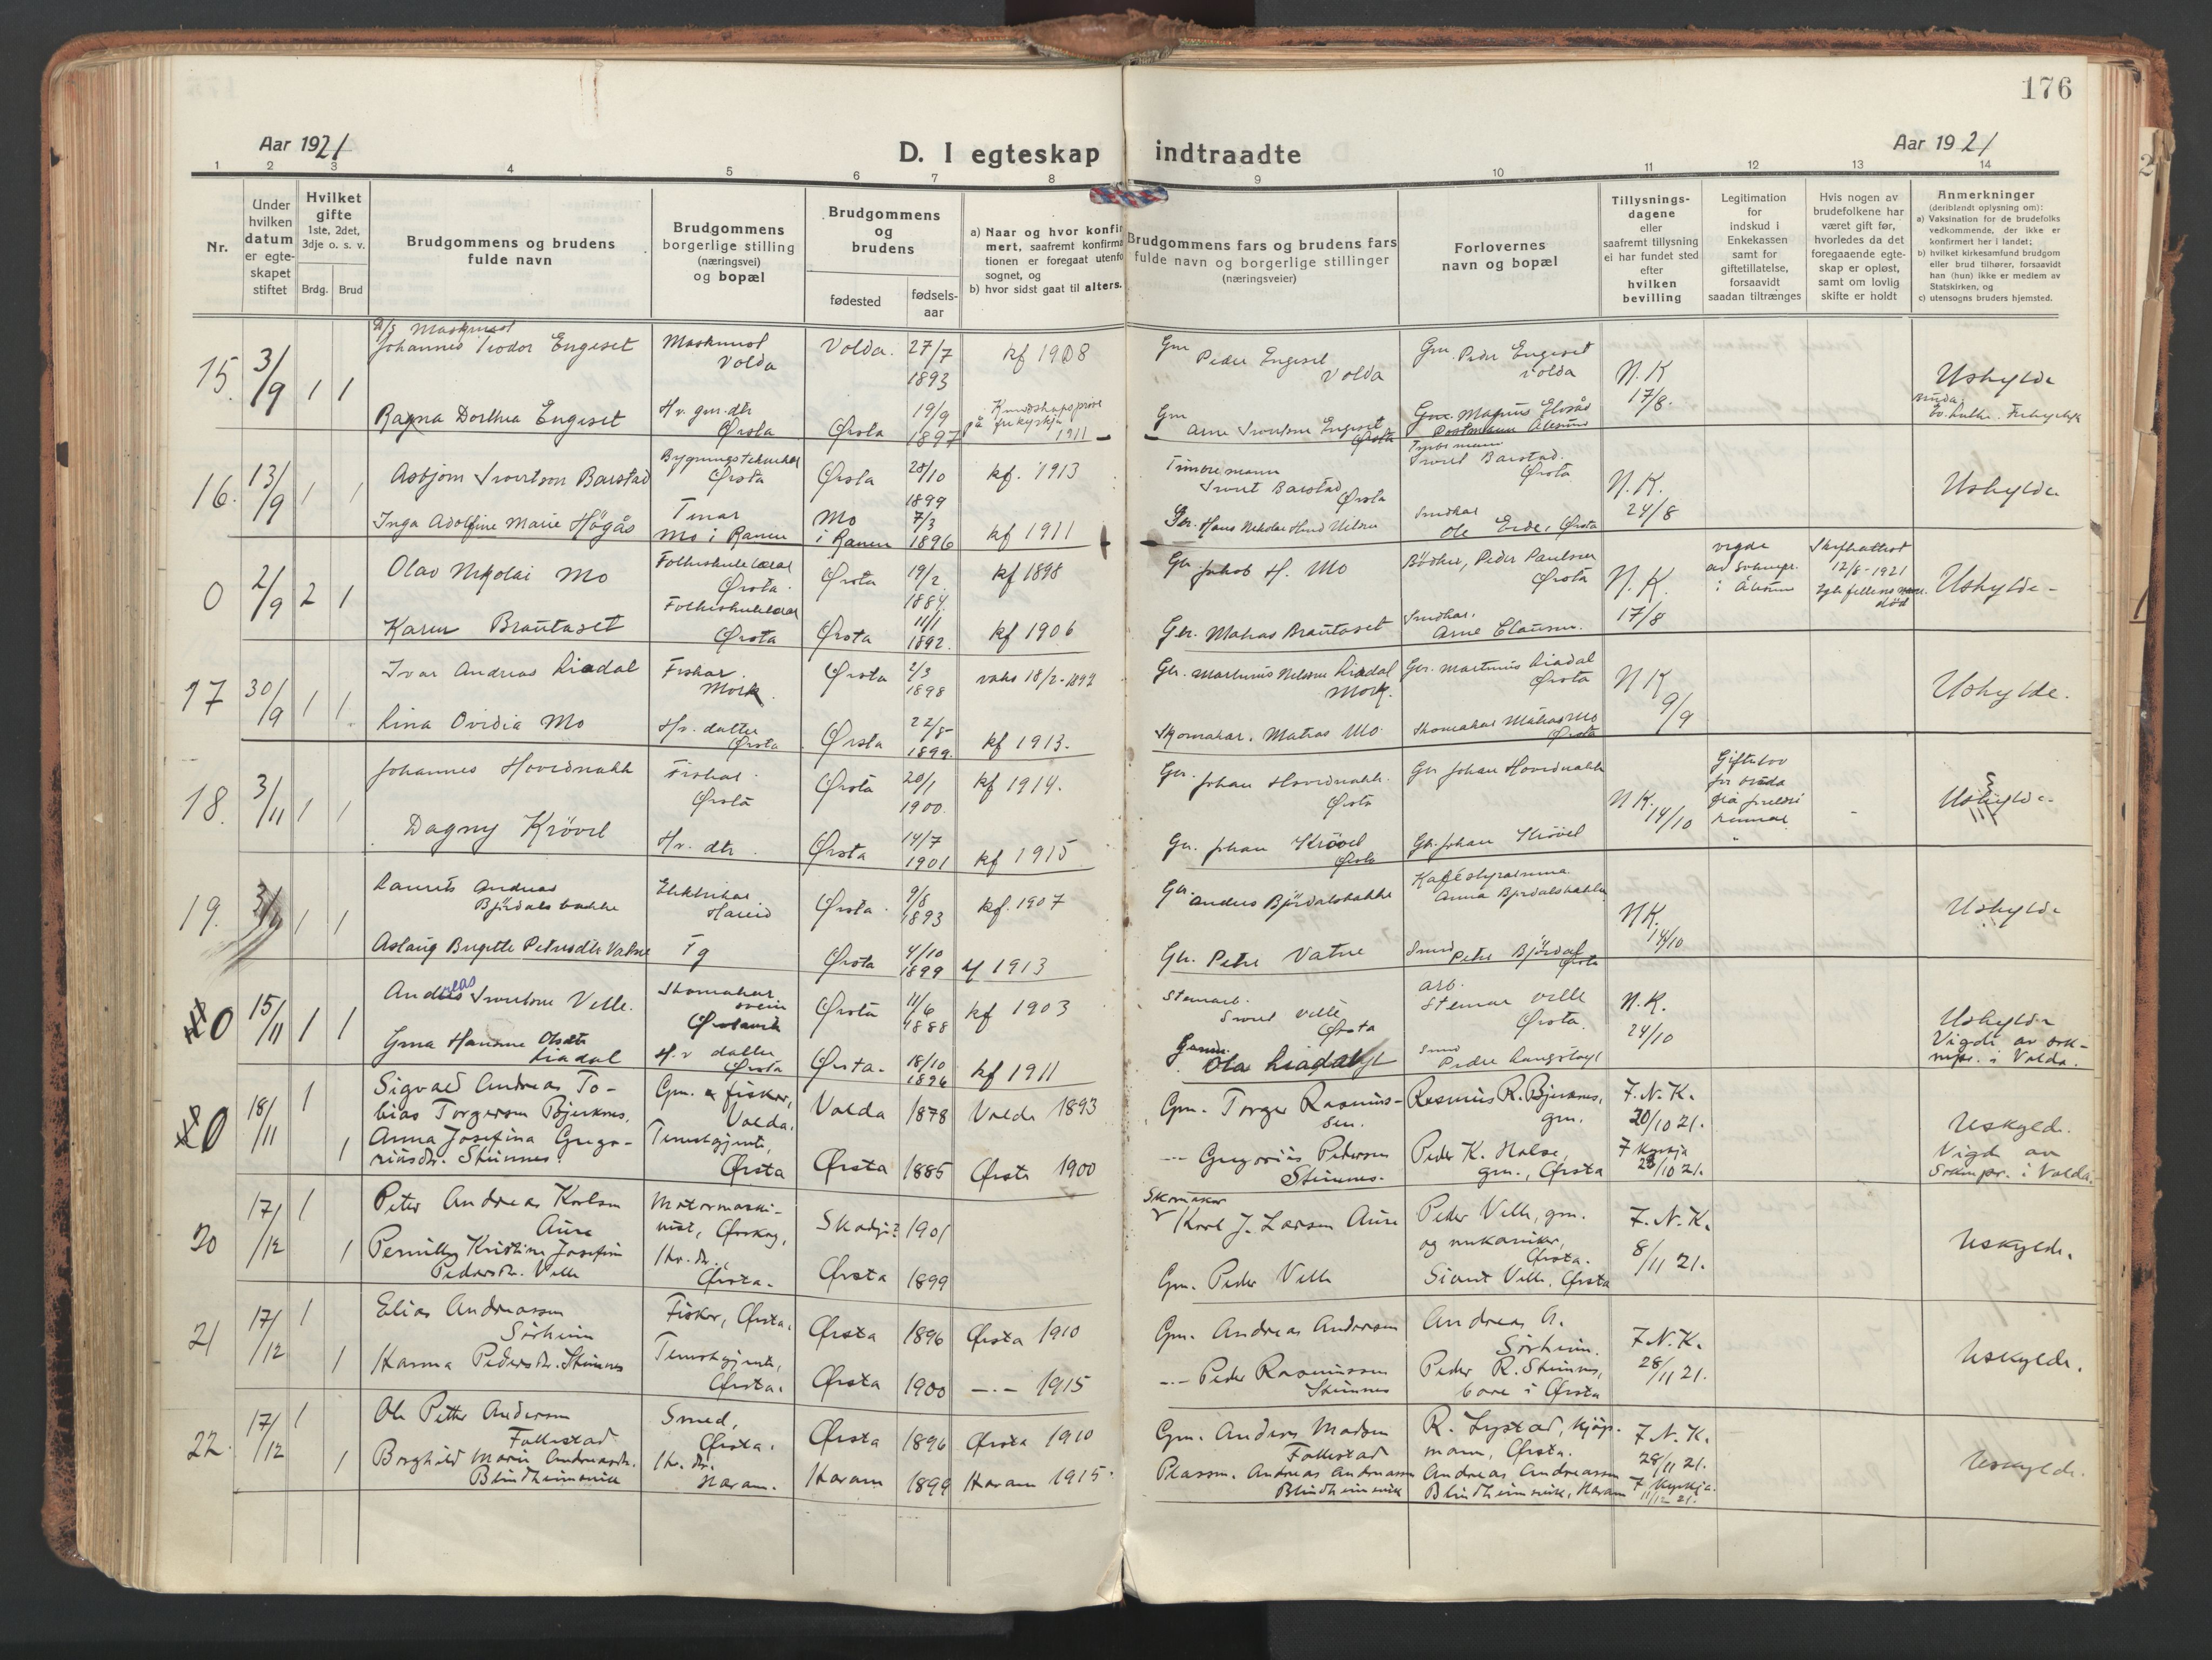 176
Aar 1921
D. I egteskap indtraadte
Aar 1921
1 2 3 4 5 6 7 8 9 10 11 12 13 14
Nr.
Under
hvilken
datum
er egte-
skapet
stiftet
Hvilket
gifte
1ste, 2det,
3dje o. s. v.
Brdg. Brud
Brudgommens og brudens
fulde navn
Brudgommens
borgerlige stilling
(næringsvei)
og bopæl
Brudgommens
og
brudens
fødested
fødsels-
aar
a) Naar og hvor konfir
mert, saafremt konfirma
tionen er foregaat utenfo
sognet, og
b) hvor sidst gaat til alters.
Brudgommens fars og brudens fars
fulde navn og borgerlige stillinger
(næringsveier)
Forlovernes
navn og bopæl
Tillysnings-
dagene
eller
saafremt tillysning
ei har fundet sted
efter
hvilken
bevilling
Legitimation
for
indskud i
Enkekassen
samt for
giftetillatelse,
forsaavidt
saadan tiltrænges
Hvis nogen av
brudefolkene har
været gift før,
hvorledes da det
foregaaende egte-
skap er opløst,
samt om lovlig
skifte er holdt
Anmerkninger
(deriblandt oplysning om):
a) Vaksination for de brudefolks
vedkommende, der ikke er
konfirmert her i landet;
b) hvilket kirkesamfund brudgom
eller brud tilhører, forsaavidt
han (hun) ikke er medlem av
Statskirken, og
c) utensogns bruders hjemsted.
15. 3/9 1 1
Johannes Teodor Engeset
Maskinist
Volda
Volda. 27/7
1893
kf 1908
Gm
Peder Engeset
Volda
Gm. Peder Engeset
Volda
N. K
17/8.
Uskylde
Ragna Dorthea Engeset
H v. gm. dtr
Ørsta
Ørsta
19/9
1897
Kundskapsprøve
1911
Gm
Arne Ivertsne Engeset
Ørsta
16. 13/9 1 1
Asbjørn Ivertson Barstad
Ørsta
Ørsta
28/10
1899
kf. 1913
Ivert Barstad
Ørsta
Ivert Barstad.
Ørsta
N. K.
24/8
Uskylde
Inga Adolfine Marie Högås
Mo i Ranen
Mo
i Ranen
7/3
1896
kf 1911
Ole Eide, Ørsta
0 2/9 2 1
Olav Nikolai Mo
Folkeskulelærar
Ørsta
Ørsta
19/2
1884
kf 1898
Gbr. Jakob H. Mo
Peder Paulsen
Ørsta
N. K.
17/8
vigde
i Ålesund
Skifteattest
12/8-1921
død
Uskylde-
Karen Brautaset
Folkeskulelærar
Ørsta
Ørsta
11/1
1892.
kf 1906
Gbr. Matias Brautaset
Snedkar.
Arne Clausen.
17 30/9 1 1
Ivar Andreas Liadal
Fiskar.
Mork
Ørsta
2/3
1898
Gbr. Martinus Nilssen Liadal
Mork.
Gbr. Martinus Liadal
Ørsta
N K
9/9
Uskylde.
Lina Ovidia Mo
Hv. datter
Ørsta
Ørsta
22/8
1899
kf 1913.
Skomakar. Matias Mo
Skomakar Matias Mo
Ørsta
18. 3/11 1 1
Johannes Hovednakk
Fiskar
Ørsta
Ørsta
20/1
1900.
kf 1914.
Gbr. Johan Hovednakk.
Ørsta
Gbr Johan Hovednakk
N K.
14/10
Uskylde
Dagny Krøvel
Hv. dtr.
Ørsta
14/7
1901
kf 1915
Gbr. Johan Krøvel
Ørsta
Gbr. Johan Krøvel
19. 1 1
Laurits Andreas
Bjørdalsbakke
Elektrikar
Hareid
Ørsta.
9/8
1893
kf. 1907
Gbr.
Anders Bjørdalsbakke
Anna Bjørdalsbakke
N K.
14/10
Uskylde
Aslaug Birgitte Petersdtr Vatne
Ørsta
4/10
1899
kf 1913
Gbr. Peter Vatne
Peter Bjørdal
Ørsta
0 15/11 1 1
Andreas Ivertsne Velle.
Skomakar
svein
Ørstavik
Ørsta
11/6
1888
kf 1903
Steinarb.
Ivert Velle
Ørsta
arb.
Steinar Velle
Ørsta.
N. K.
24/10
Uskylde
Vigde av sok-
nepr. i Volda.
Olsdtr
Liadal
H.v datter
Ørsta
Ørsta.
18/10
1896
kf 1911
Ola Liadal
0 18/11 1
Sigvald Andreas To-
bias Torgersen Bjerknes,
Gm. & fisker,
Volda.
Volda 1878 Volda 1893
Gm. Torger Rasmus-
sen.
Rasmus R. Bjerknes,
gm.
F. N. K.
20/10 21.
Uskyld.
Vigde av
Soknepr. i Volda.
1
Anna Josefina Grego-
riusdtr. Steinnes.
Tenestgjente,
Ørsta
Ørsta 1885 Ørsta 1900
Gregorius Pedersen
Steinnes.
Peder K. Halse,
gm., Ørsta
F Kyrkja
23/10 21.
20 17/12 1
Peter Andreas Karlsen
Aure
Motormaski-
nist, Ørskog,
1901
Skomaker
Karl J. Larsen Aure
Peder Velle, gm.
og mekaniker,
Ørsta.
F. N. K.
8/11 21.
Uskylde.
1
Pernille Kristine Josefine
Pedersdtr. Velle
Hv. dr.,
Ørsta.
Ørsta 1899
Gm. Peder Velle
Sivert Velle, Ørsta
21 17/12 1
Elias Andreassen
Sørheim
Fisker, Ørsta.
Ørsta 1896 Ørsta 1910
Gm. Andreas Andersen
Andreas A.
Sørheim.
F. N. K.
28/11 21.
Uskylde.
1
Harma Pedersdtr. Steinnes
Tenestgjente,
Ørsta.
Ørsta 1900 —.— 1915
—.— Peder Rasmussen
Steinnes
Peder R. Steinnes,
bare i Ørsta
22. 17/12 1
Ole Petter Andersen
Follestad
Smed,
Ørsta.
Ørsta 1896 Ørsta 1910
Gm. Anders Madsen
Follestad
R. Lystad, kjøp-
mann, Ørsta.
F. N. K.
28/11 21.
Uskylde.
1
Borghild Marie Andreasdtr.
Blindheimsvik
Hv. dr.
Haram.
Haram 1899 Haram 1915.
Plassm. Andreas Andreassen
Blindheimsvik
Andreas Andreassen
Blindheimsvik, Haram
F Kyrkja.
11/12 21.